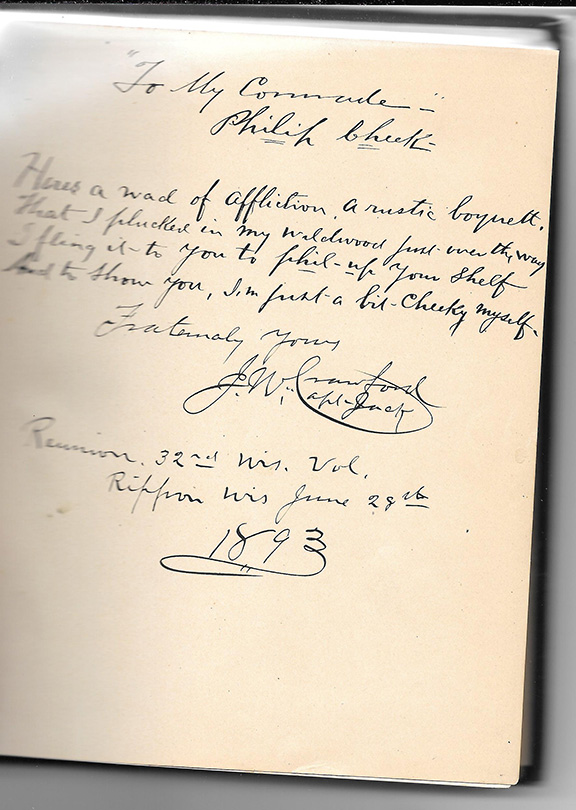 "To My Comrade"
Philip Cheek
Heres a wad of affliction, a rustic boquett.
That I plucked in my wildwood just over the way
I fling it to you to phil-up your shelf
And to show you, I,m just a bit Cheeky myself.
Fraternaly yours
J. W. Crawford
Capt Jack
Reunion. 32nd Wis. Vol.
Rippon Wis June 28th
1893